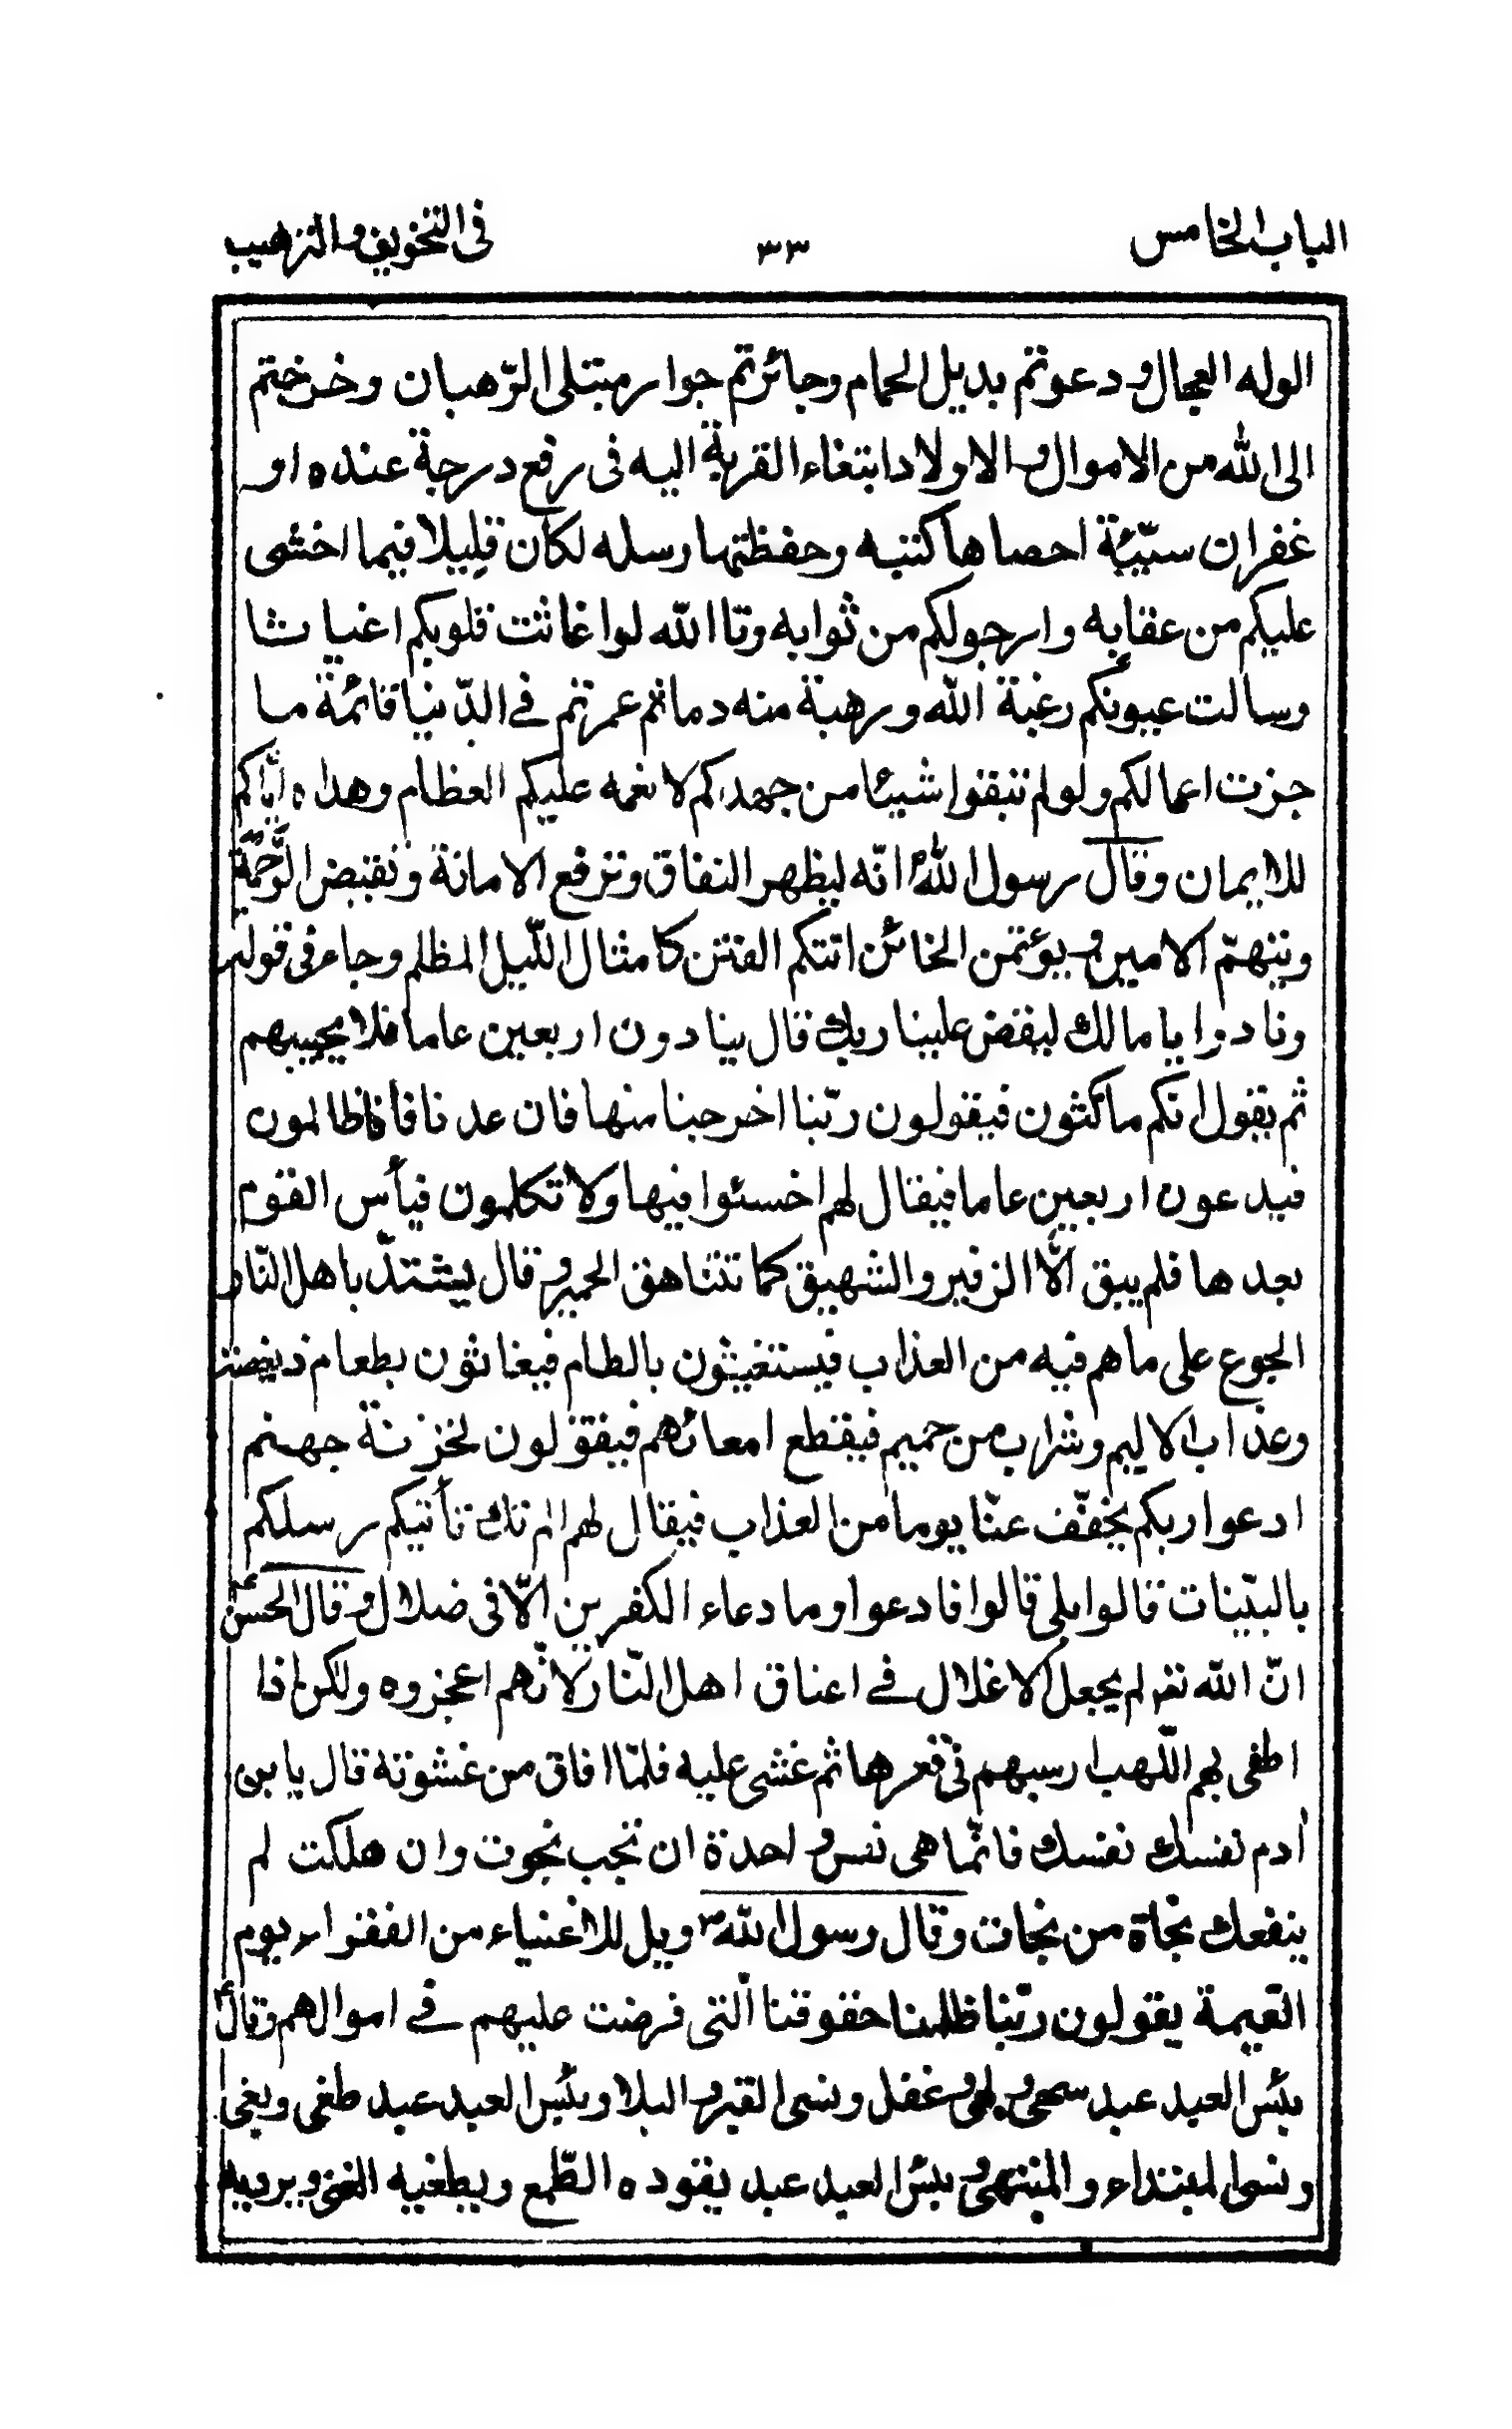 الباب الخامس ٣٣ فى التخويف والترهيب
الوله العجال ودعوتم بديل الحمام وجائرتم جوار مبتلى الرّهبان وخرختم
الى الله من الاموال والاولاد ابتغاء القربة اليه فى رفع درجة عنده او
غفران سيّئة احصاها كتبه وحفظتها رسله لكان قليلا فيما اخشى
عليكم من عقابه وارجو لكم من ثوابه وتا الله لو اغاثت قلوبكم اغياثا
وسالت عيونكم رغبة الله ورهبة منه دماثم عمرتم فى الدّنيا قائمة ما
جزت اعمالكم ولو لم تبقوا شيئا من جهدكم لانعمه عليكم العظام وهداه ايّاكم
للايمان وقال رسول الله انّه ليظهر النفاق وترفع الامانة وتقبض الرّحمة
ويتهمّ الامين ويؤتمن الخائن اتتكم الفتن كامثال اللّيل المظلم وجاء فى قوله
ونادوا يا مالك ليقض علينا ربك قال ينادون اربعين عاما فلا يجيبهم
ثم يقول انكم ماكثون فيقولون ربّنا اخرجنا منها فان عدنا فانا ظالمون
فيدعون اربعين عاما فيقال لهم اخسئوا فيها ولا تكلمون فيأس القوم
بعدها فلم يبق الّا الزفير والشهيق كما تتناهق الحمير وقال يشتدّ باهل النّار
الجوع على ما هم فيه من العذاب فيستغيثون بالطام فيغاثون بطعام ذيغصت
وعذاب الاليم وشراب من حميم فيقطع امعائهم فيقولون لخزنة جهنم
ادعوا ربكم يخفّف عنّا يوما من العذاب فيقال لهم الم تك تأتيكم رسلكم
بالبيّنات قالوا بلى قالوا فادعوا وما دعاء الكفرين الّا فى ضلال وقال الحسن
انّ الله تعر لم يجعل الاغلال فى اعناق اهل النّار لانّهم اعجزوه ولكن اذا
اطفى بهم اللّهب ارسبهم فى قعرها ثم غشى عليه فلمّا افاق من غشوته قال يابن
أدم نفسك نفسك فانّما هى نفس واحدة ان نجب نجوت وان هلكت لم
ينفعك نجاة من نجات وقال رسول الله ص ويل للاغنياء من الفقراء يوم
القيمة يقولون ربّنا ظلمنا حقوقنا الّتى فرضت عليهم فى اموالهم وقال
بئس العبد عبد سهى ولهى وغفل ونسى القبر والبلا وبئس العبد عبد طغى وبغى
ونسى المبتداء والمنتهى وبئس العبد عبد يقوده الطّمع ويطغيه الغنى ويرديه